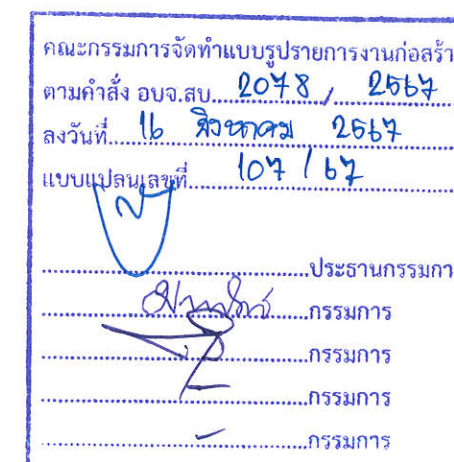 คณะกรรมการจัดทำแบบรูปรายการงานก่อสร้า
ตามคำสั่ง อบจ.สบ. 2078 / 2567
ลงวันที่ 16 สิงหาคม 2567
แบบแปลนเลขที่ 107 / 67
ประธานกรรมกา
กรรมการ
กรรมการ
กรรมการ
กรรมการ